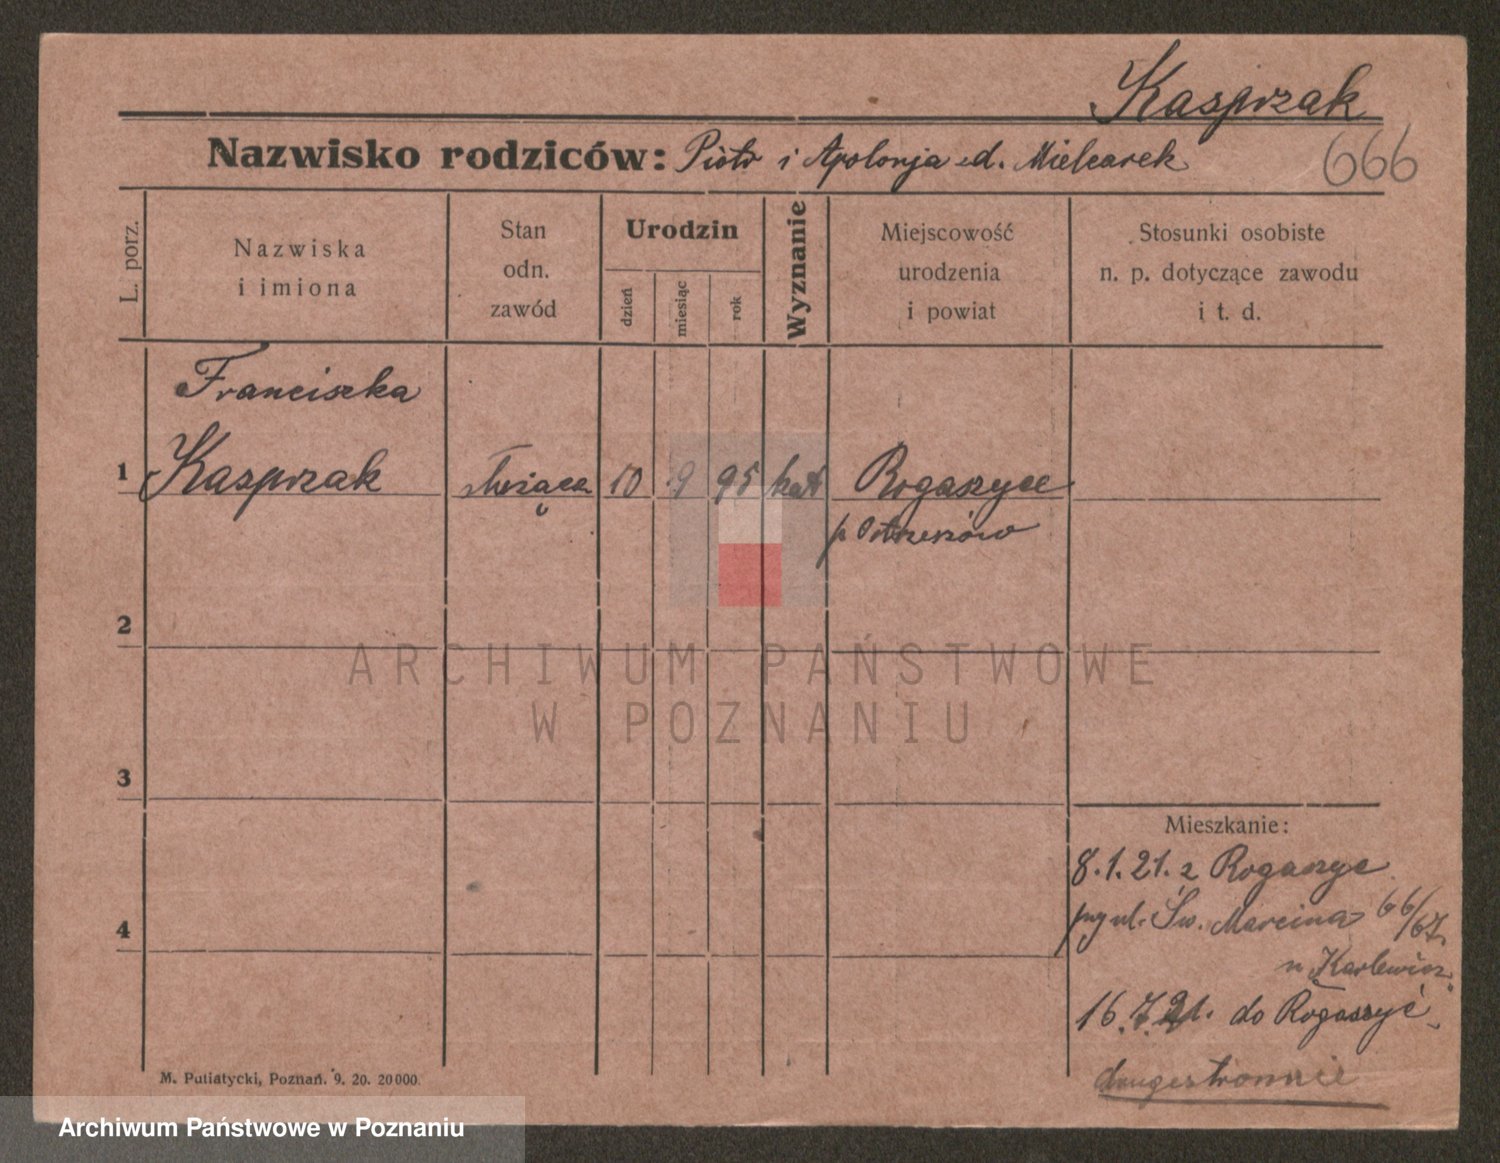 Kasprzak
Nazwisko rodziców: Piotr i Apolonja d. Mielcarek 666
L. porz.
Nazwiska
i imiona
Stan
odn.
zawód
Urodzin
dzień
miesiąc
rok
Wyznanie
Miejscowość
urodzenia
i powiat
Stosunki osobiste
n. p. dotyczące zawodu
i t. d.
Franciszka
1 Kasprzak służąca 10 9 95 kat Rogaszyce
p Ostrzeszów
2
ARCHIWUM PAŃSTWOWE
W POZNANIU
3
Mieszkanie:
8.1.21. z Rogaszyc
ul. Św. Marcina 66/67
4
u Karlewicz
16.7.21. do Rogaszyc
M. Putiatycki, Poznań. 9. 20. 20000.
Archiwum Państwowe w Poznaniu